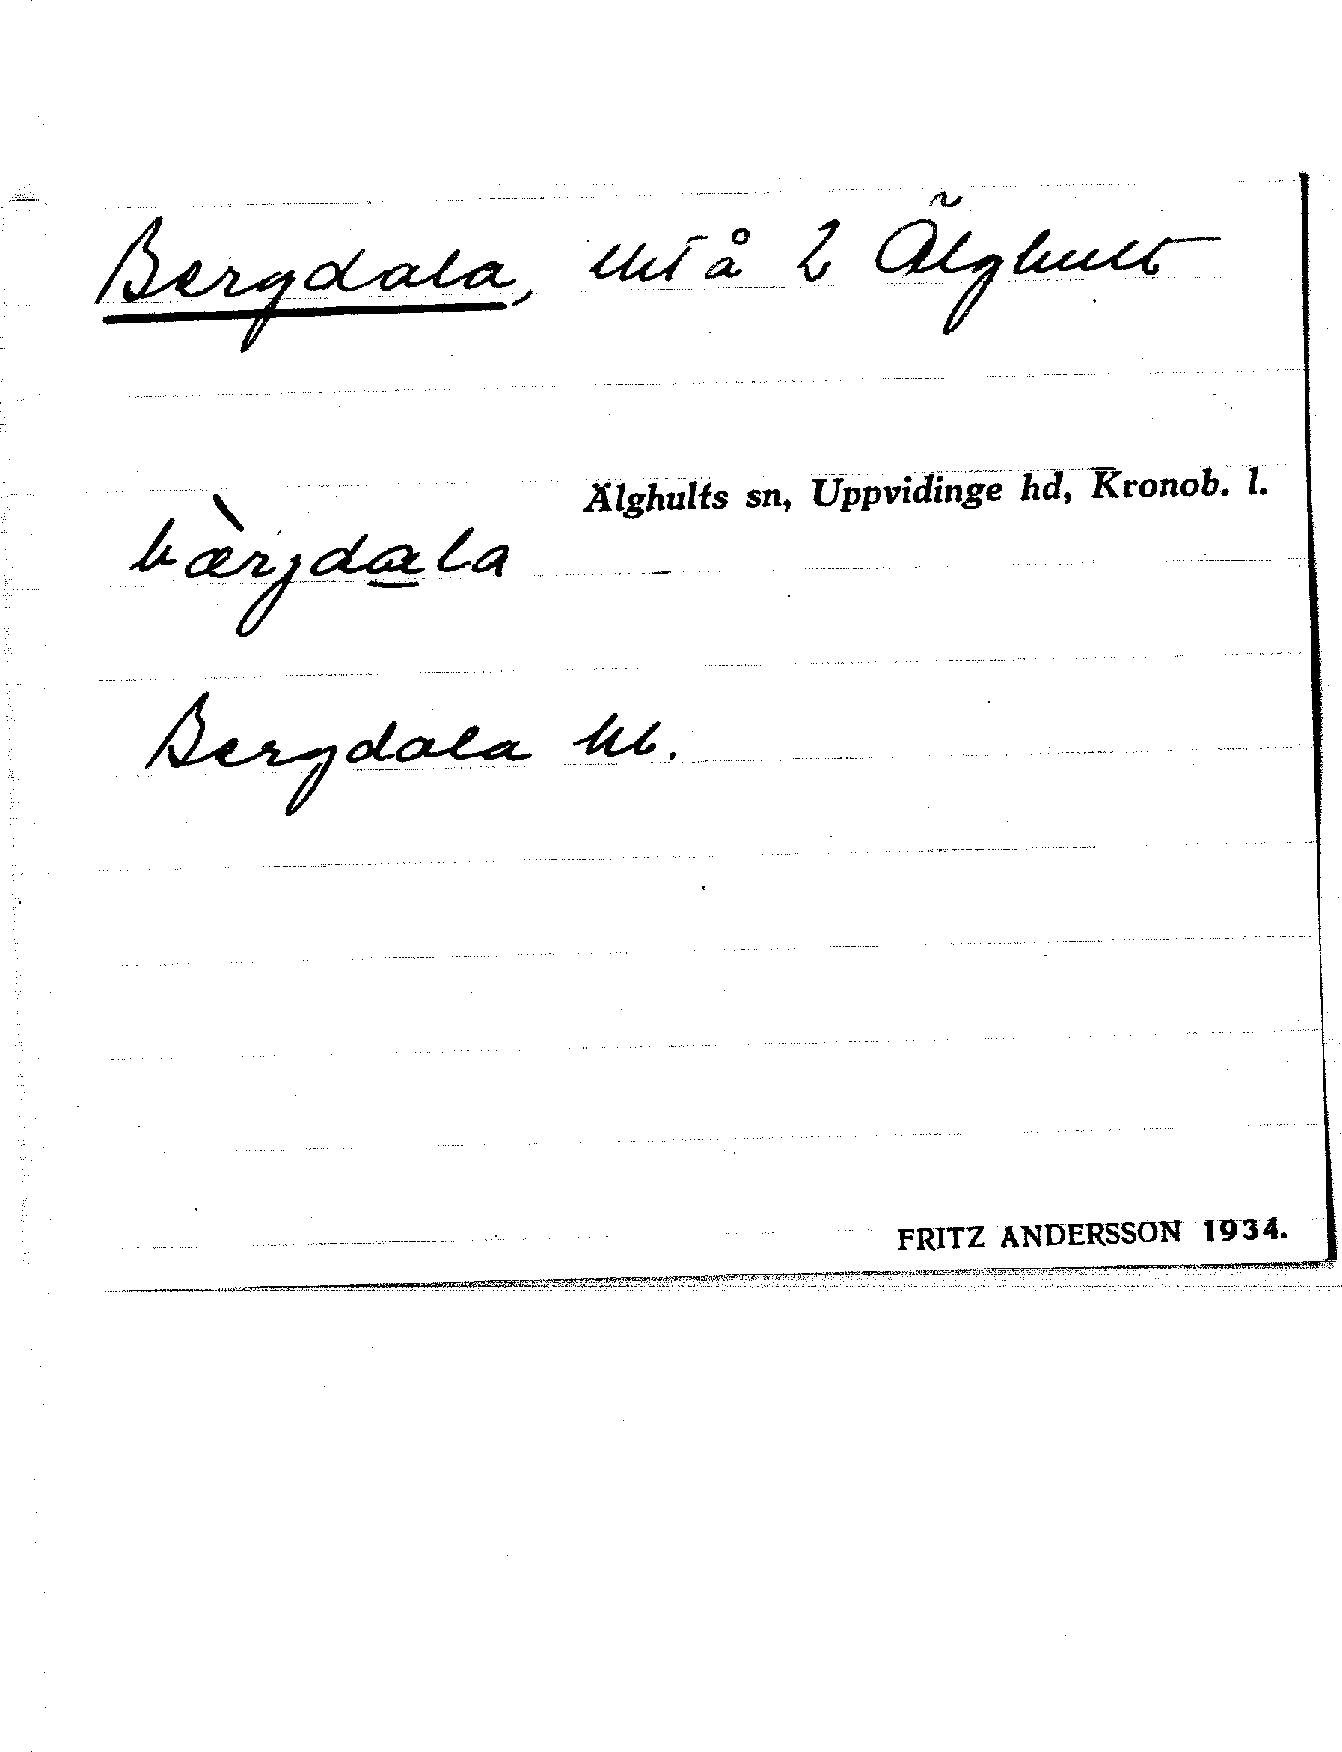 Bergdala, lht å 2 Älghult
Älghults sn, Uppvidinge hd, Kronob. l.
bæ̀rjdala
Bergdala kb.
FRITZ ANDERSSON 1934.